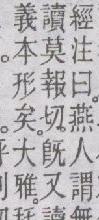 經注曰。燕人謂
讀莫報切。旣又讀
義本形矣。大雅。